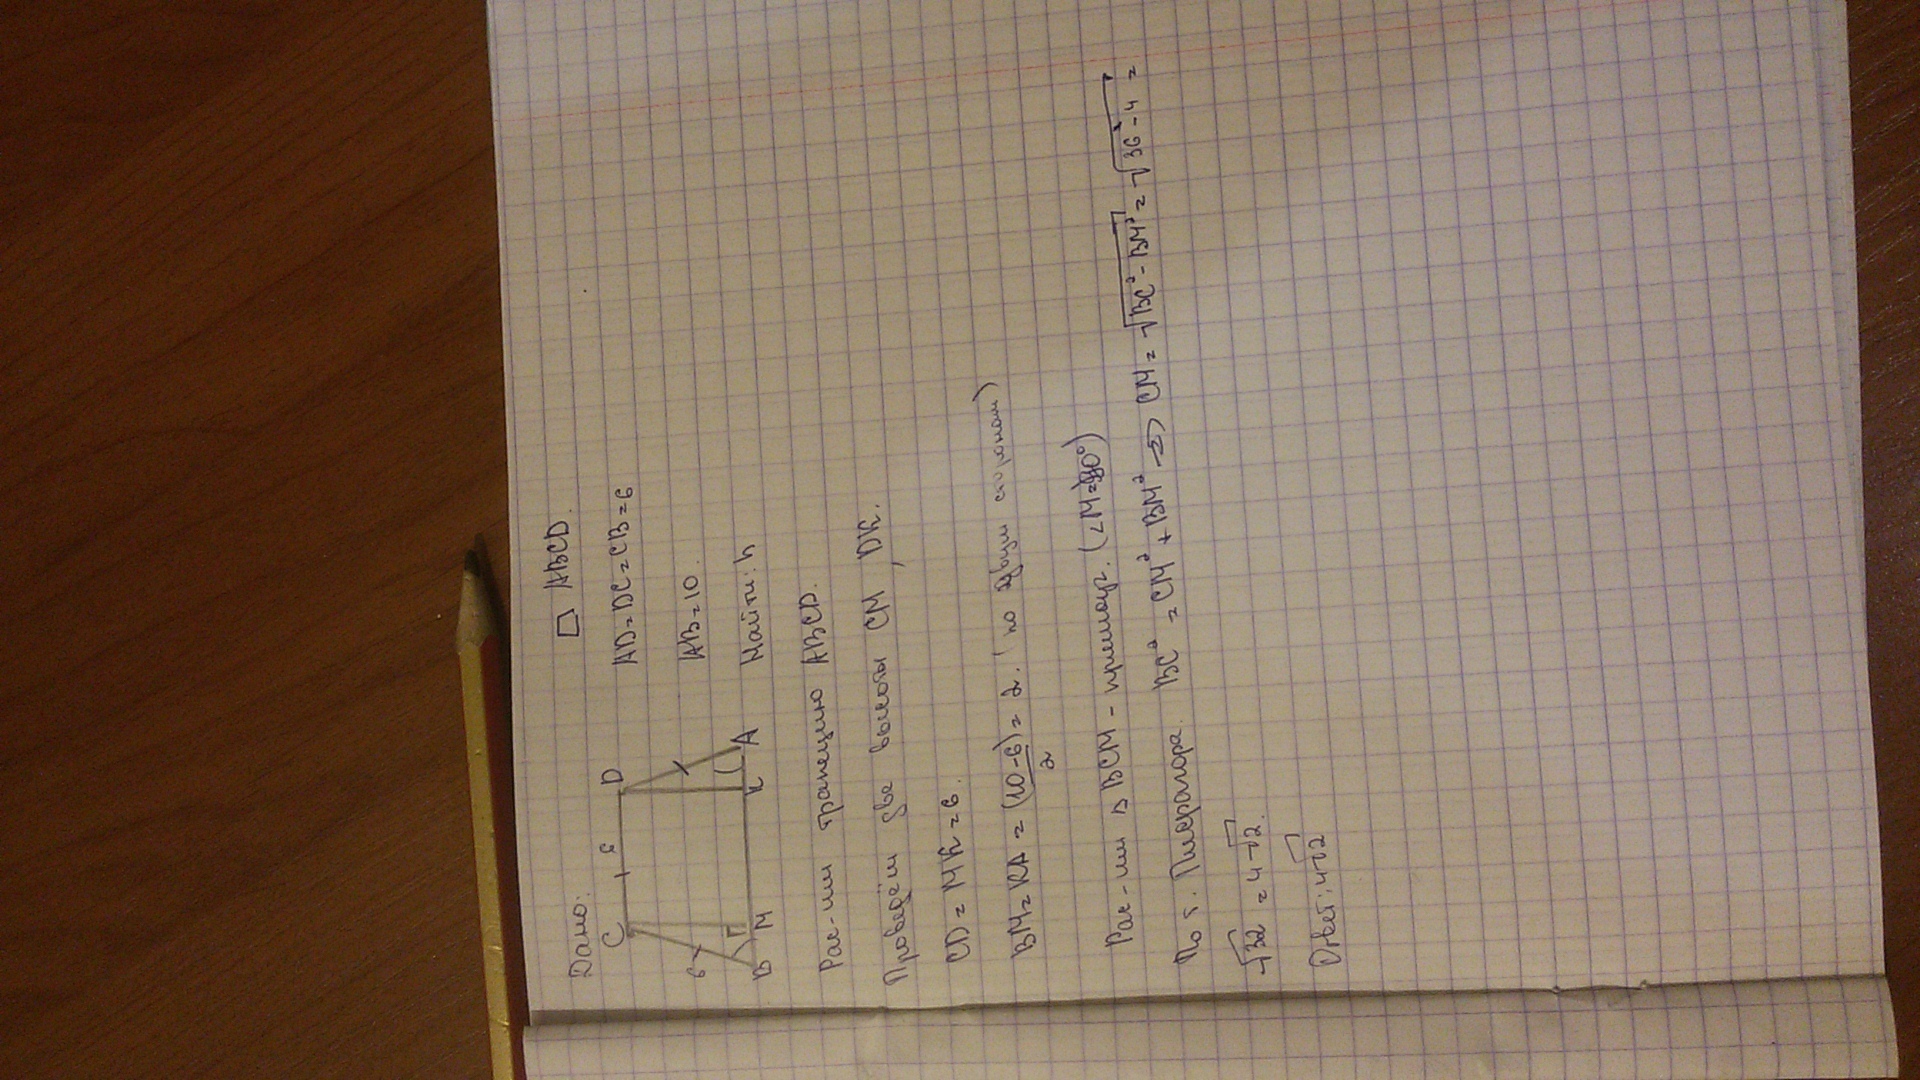 Дано:
□ ABCD.
AD=DC=CB=6
AB=10.
Найти: h
C D
6 6
B M K A
Рас-им трапецию ABCD.
Проведём две высоты CM, DK.
CD = MK = 6.
BM = KA = (10-6)/2 = 2. (по двум сторонам)
Рас-им △ BCM - прямоуг. (∠M=90°)
По т. Пифагора. BC² = CM² + BM² => CM = √BC² - BM² = √36 - 4 =
√32 = 4√2.
Ответ: 4√2